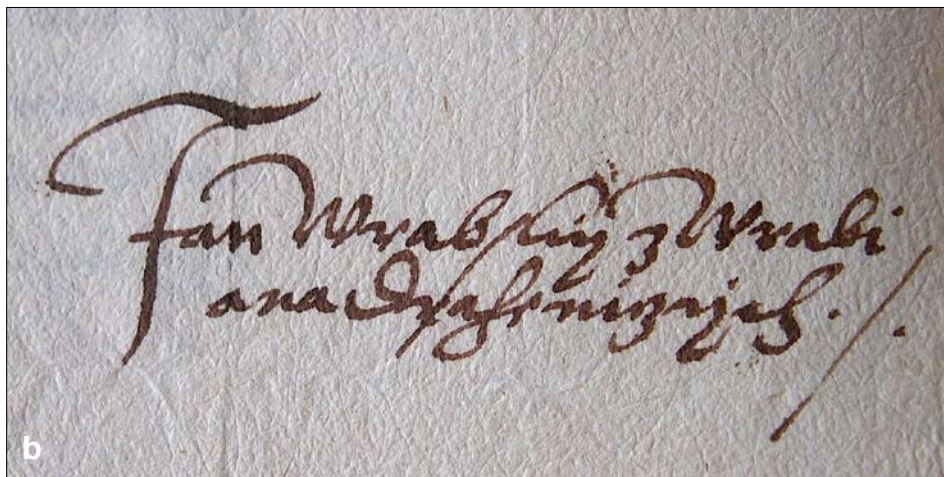 Jan Wrabskij z Wrabi
ana Draheniczijch. /.
b